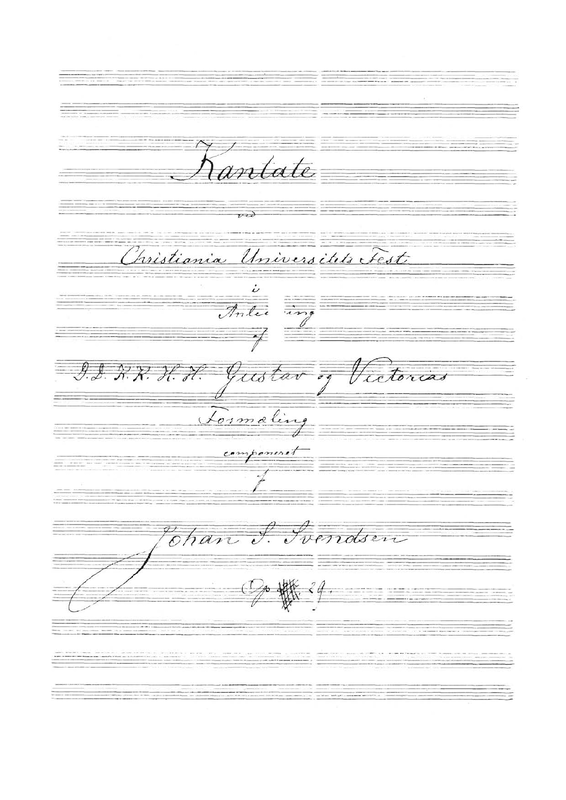 Kantate
ved
Christiania Universitets Fest
i
Anledning
af
D.D. K.K. H.H. Gustav og Victorias
Formæling
componeret
af
Johan S. Svendsen
Op 29.